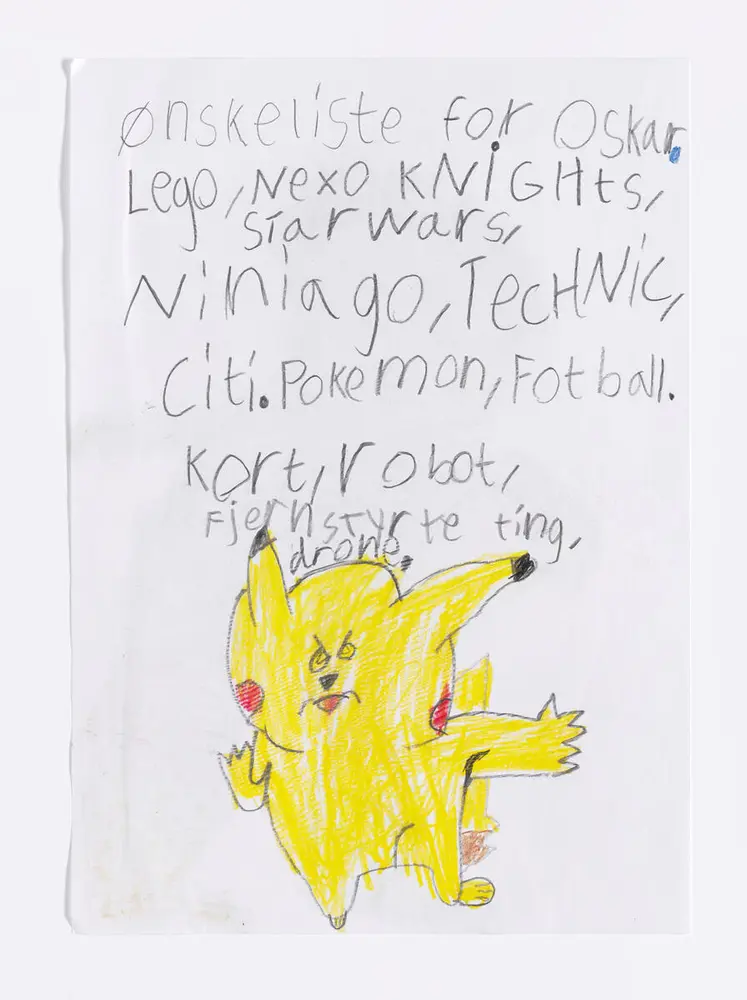 Ønskeliste for Oskar.
Lego, Nexo KNiGHts,
starwars,
Niniago, TecHNic,
Citi. Pokemon, Fotball.
kort, robot,
Fjernstyrte ting,
drone.